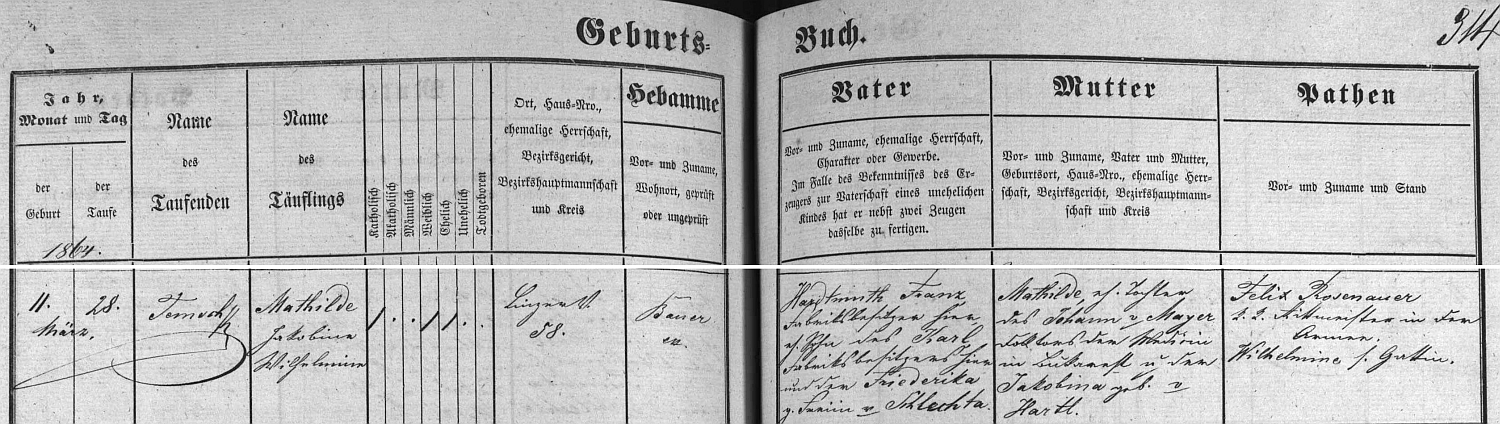 Geburts-
Buch.
314
Jahr,
Monat und Tag
der
Geburt
der
Taufe
1864.
Name
des
Taufenden
Name
des
Täuflings
Katholisch
Akatholisch
Männlich
Weiblich
Ehelich
Unehelich
Todtgeboren
Ort, Haus-Nro.,
ehemalige Herrschaft,
Bezirksgericht,
Bezirkshauptmannschaft
und Kreis
Hebamme
Vor- und Zuname,
Wohnort, geprüft
oder ungeprüft
Vater
Vor- und Zuname, ehemalige Herrschaft,
Charakter oder Gewerbe.
Im Falle des Bekenntnisses des Er-
zeugers zur Vaterschaft eines unehelichen
Kindes hat er nebst zwei Zeugen
dasselbe zu fertigen.
Mutter
Vor- und Zuname, Vater und Mutter,
Geburtsort, Haus-Nro., ehemalige Herr-
schaft, Bezirksgericht, Bezirkshauptmann-
schaft und Kreis
Pathen
Vor- und Zuname und Stand
11.
März.
28.
Mathilde
Jakobine
Wilhelmine
Linzer V.
58.
Bauer
ex.
Hardtmuth Franz
Fabriksbesitzer hier
eh. Sohn des Karl
Fabriksbesitzers hier
und der Friederika
g. Freiin v Schlechta.
Mathilde, eh. Tochter
des Johann v Mayer
Doktors der Medicin
in Bukarest u der
Jakobina geb. v
Hartl.
Felix Rosenauer
k. k. Rittmeister in der
Armee.
Wilhelmine s. Gattin.